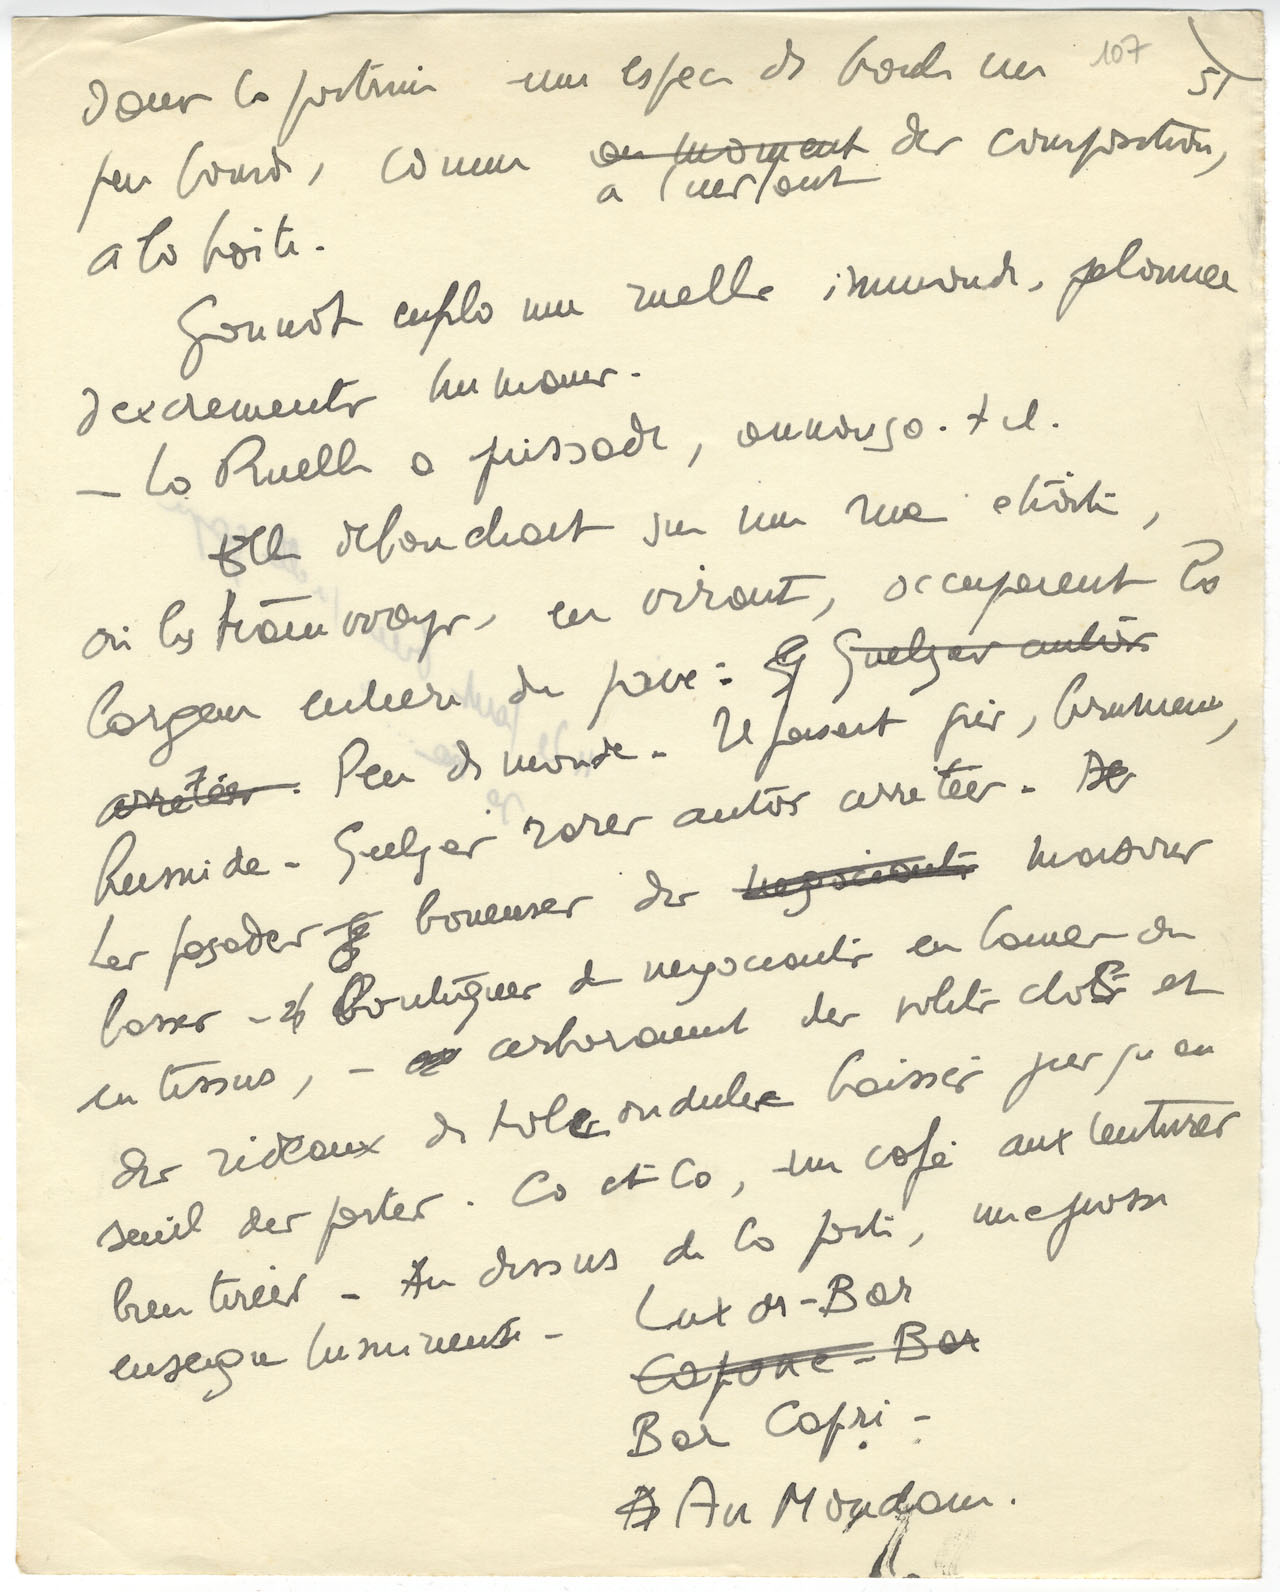 107
51
dans la poitrine une espèce de boule un
peu lourde, comme au moment des compositions,
à l'instant
à la boîte.
Gounot enfila une ruelle immonde, pleine
d'excréments humains.
— La Ruelle à pissade, annonça-t-il.
Elle débouchait sur une rue étroite,
où les tramways, en virant, occupaient la
largeur entière du pavé : Quelques autos
arrêtées. Peu de monde. Il faisait gris, brumeux,
humide. Quelques rares autos arrêtées. De
Les façades boueuses des négociants maisons
basses - Boutiques de négociants en laines ou
en tissus, - arboraient des volets clos et
des rideaux de tôle ondulée baissés jusqu'au
seuil des portes. Çà et là, un café aux tentures
bien tirées - Au dessus de la porte, une grosse
enseigne lumineuse - Luxor-Bar
Capone-Bar
Bar Capri -
Au